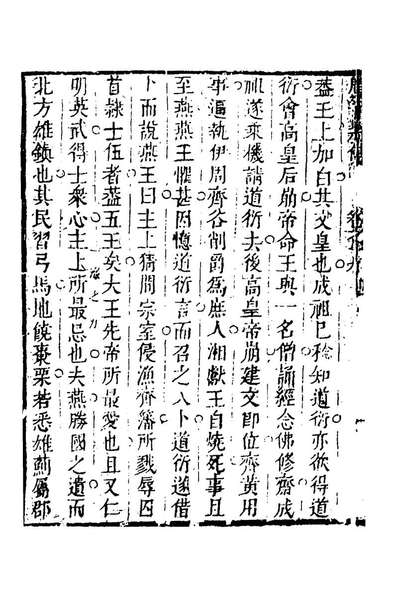 蓋王上加白其文皇也成祖已稔知道衍亦欲得道
衍會高皇后崩帝命王與一名僧誦經念佛修齋成
祖遂乘機請道衍去後高皇帝崩建文即位齊黃用
事逼執伊周齊谷削爵為庶人湘獻王自燒死事且
至燕燕王懼甚因憶道衍言而召之入卜道衍遂借
卜而說燕王曰主上猜間宗室侵漁齊藩所戮辱囚
首隸士伍者蓋五王矣大王先帝所最愛也且又仁
明英武得士衆心主上所最忌也夫燕勝國之遺而
北方雄鎮也其民習弓馬地饒棗栗若悉雄薊屬郡